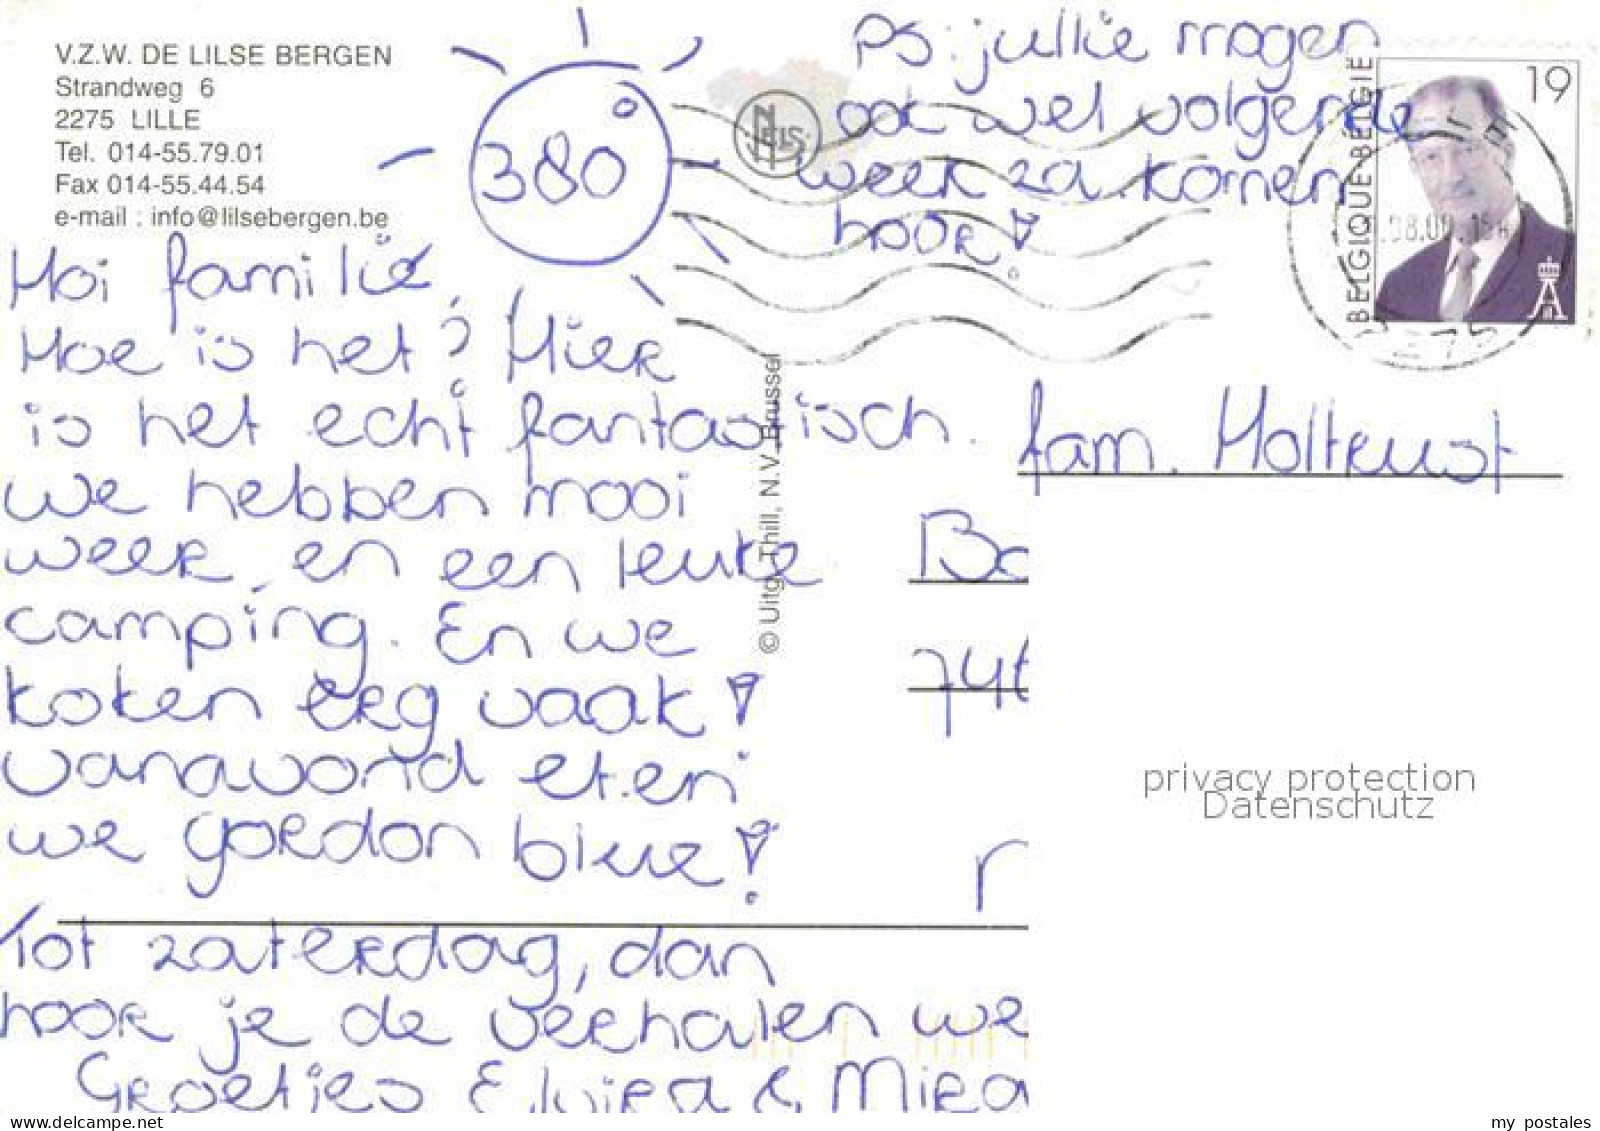 V.Z.W. DE LILSE BERGEN
Strandweg 6
2275 LILLE
Tel. 014-55.79.01
Fax 014-55.44.54
e-mail : info@lilsebergen.be
38°
PS: jullie mogen
ook wel volgende
week za. komen
hoor!
NELS
BELGIQUE·BELGIË
19
2275
Hoi familie,
Hoe is het? Hier
is het echt fantastisch.
we hebben mooi
weer, en een leuke
camping. En we
koken erg vaak!
vanavond eten
we gordon bleue!
Tot zaterdag, dan
hoor je de verhalen we
Groetjes Elvira & Mira
© Uitg. Thill, N.V. Brussel
fam. Holtrust
Bo
746
privacy protection
Datenschutz
www.delcampe.net
my_postales